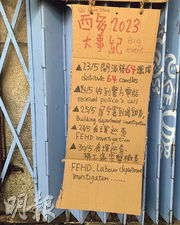 西多 2023
大事紀 Big event
▲23/5 開派發64蠟燭
distribute 64 candles
收到警方電話
received police's call
▲25/5 屋宇署到鋪調查
Building department investigation
FEHD investigation
▲30/5 食環巡查
FEHD, Labour department
investigation ......
明報